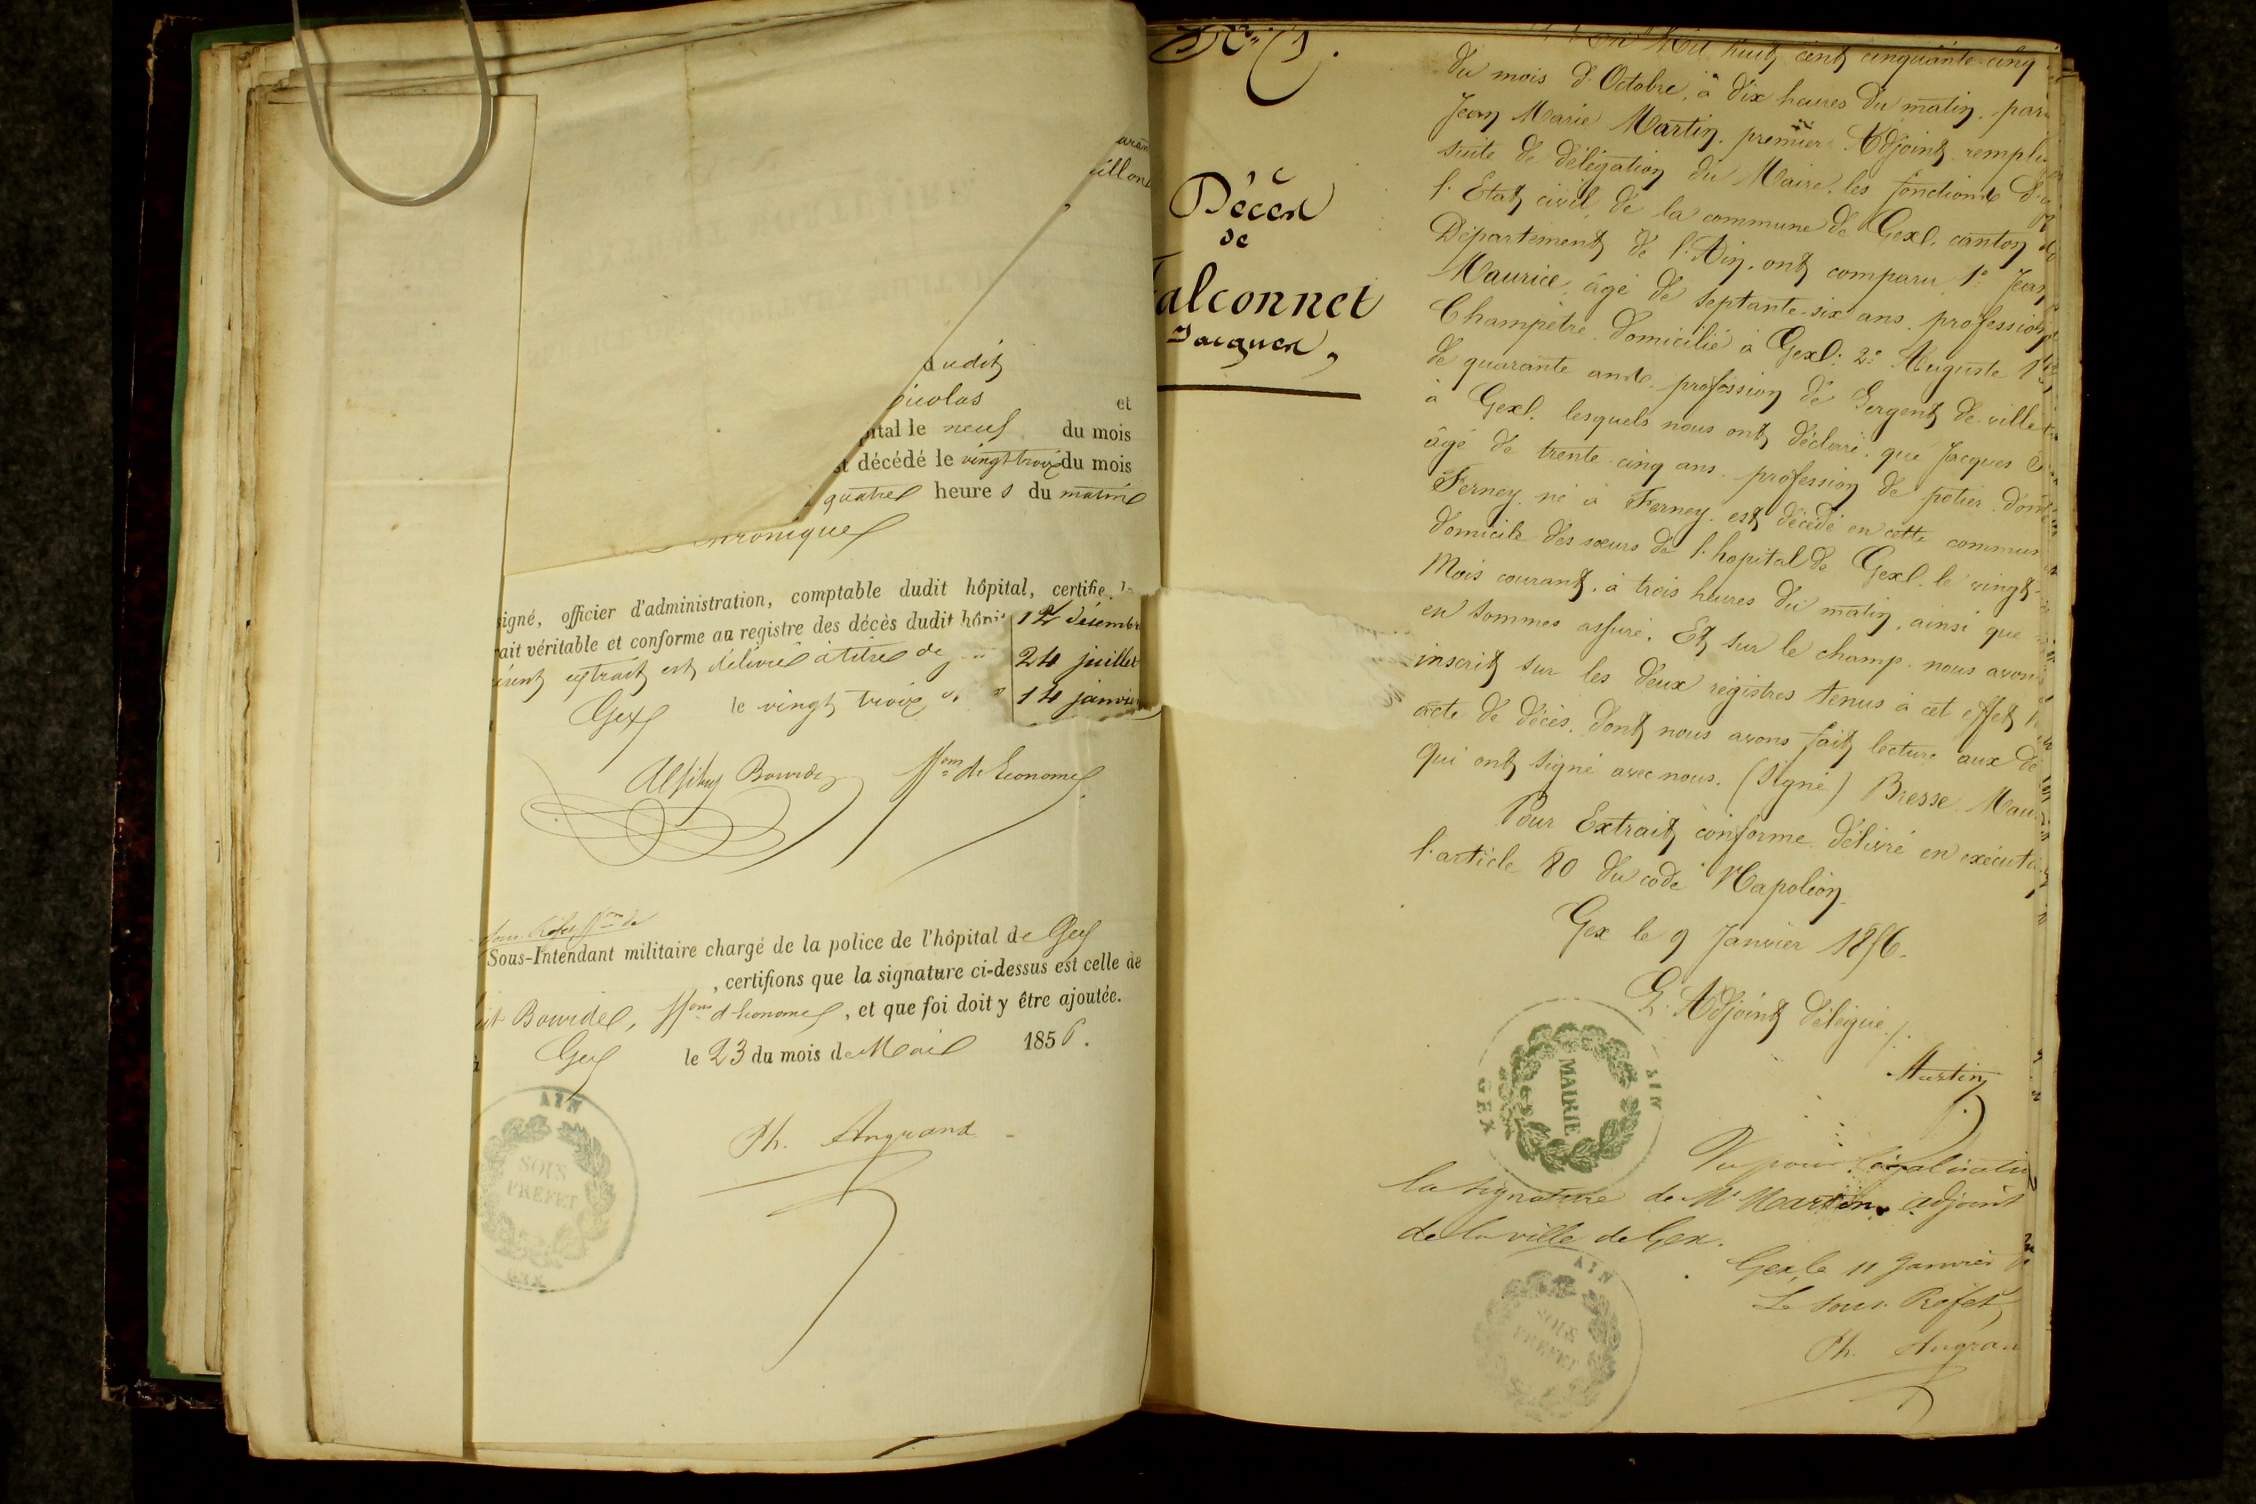 audit
Nicolas et
pital le neuf du mois
décédé le vingt trois du mois
quatre heures du matin
chronique
signé, officier d'administration, comptable dudit hôpital, certifie
ait véritable et conforme au registre des décès dudit hôpi
extrait est délivré à titre de
Gex le vingt trois
12 désembr
24 juillet
14 janvie
Bourdel fons d'Econome
Sous-Intendant militaire chargé de la police de l'hôpital de Gex
, certifions que la signature ci-dessus est celle de
Bourdel, fons d'Econome, et que foi doit y être ajoutée.
Gex le 23 du mois de Mai 1856.
AIN
SOUS
PREFET
GEX
Ph. Angrand
Décès
de
Falconnet
Jacques,
huit cent cinquante-cinq
du mois d'Octobre, à dix heures du matin, par
Jean Marie Martin, premier Adjoint, rempl
suite de délégation du Maire, les fonctions d'
l'Etat civil, de la commune de Gex, canton
Département de l'Ain, ont comparu 1° Jean
Maurice, âgé de septante-six ans, profession
Champêtre, domicilié à Gex: 2° Auguste
de quarante ans, profession de Sergent de ville
à Gex, lesquels nous ont déclaré, que Jacques
âgé de trente-cinq ans, profession de potier, dom
Ferney, né à Ferney, est décédé en cette commun
domicile des sœurs de l'hopital de Gex, le vingt-
Mois courant, à trois heures du matin, ainsi que
en sommes assuré. Et sur le champ, nous avons
inscrit sur les deux régistres tenus à cet effet
acte de décès, dont nous avons fait lecture aux dé
qui ont signé avec nous. (Signé) Bresse, Mau
Pour Extrait conforme délivré en exécuti
l'article 80 du code Napoléon.
Gex le 9 Janvier 1856.
L'Adjoint délégué,
Martin
AIN
MAIRIE
GEX
Vu pour légalisation
la signature de Mr Martin, adjoint
de la ville de Gex.
Gex, le 11 Janvier
Le Sous-Préfet,
Ph. Angran
AIN
SOUS
PREFET